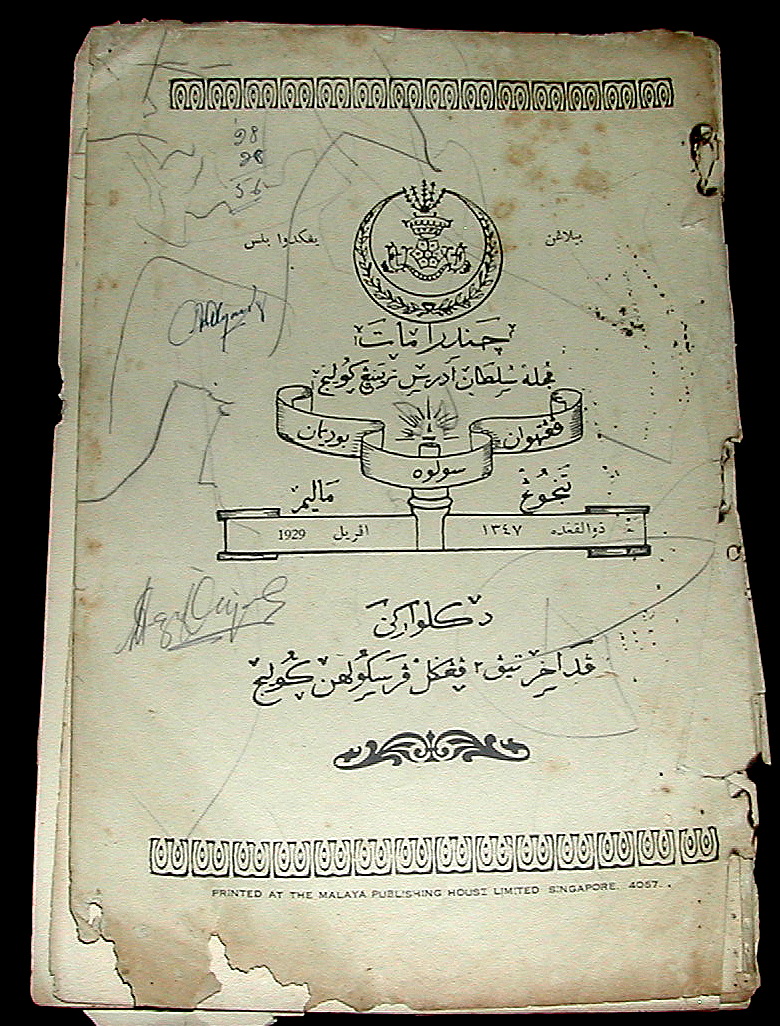 28
28
56
بيلاڠن
يڠکدوا بلس
چندراماتا
مجله سلطان ادريس ترينيڠ کوليج
ڤڠهولو
بوديمان
سولوه
تنجوڠ
ماليم
ذوالقعده ١٣٤٧
اڤريل 1929
دکلوارکن
ڤد اخير تيڤ٢ ڤڠݢل ڤرسکولهن کوليج
PRINTED AT THE MALAYA PUBLISHING HOUSE LIMITED SINGAPORE. 4057.